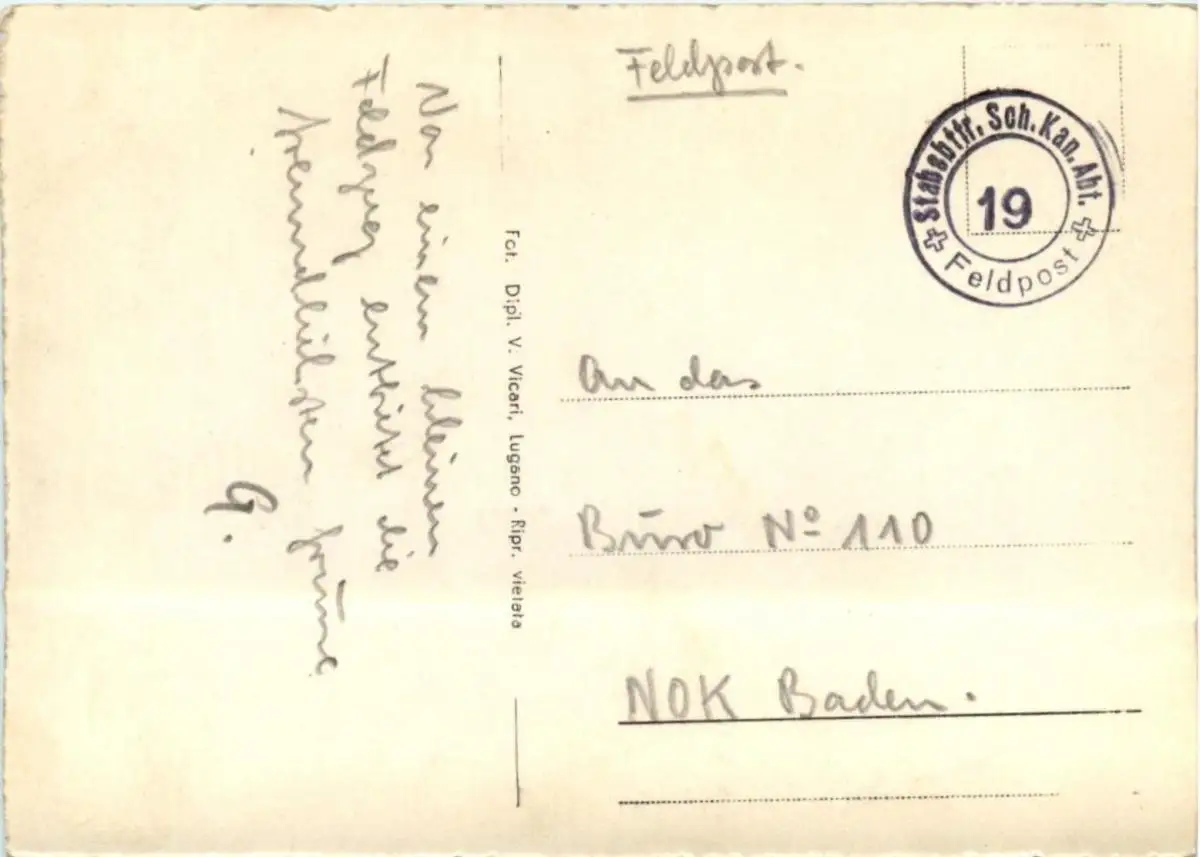 Von einem kleinen
Feldzug entbietet die
freundlichsten Grüsse
G.
Fot. Dipl. V. Vicari, Lugano - Ripr. vietata
Feldpost.
Stabsbttr. Sch. Kan. Abt.
19
Feldpost
An das
Büro Nº 110
NOK Baden.